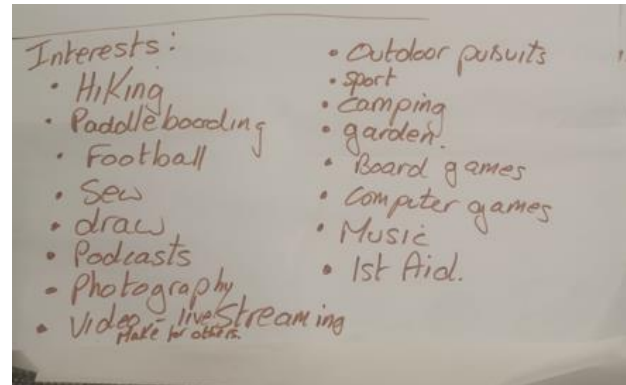 Interests:
• Hiking
• Paddleboarding
• Football
• Sew
• draw
• Podcasts
• Photography
• Video - live Streaming
Make for others.
• Outdoor pusuits
• Sport
• Camping
• garden.
• Board games
• Computer games
• Music
• 1st Aid.